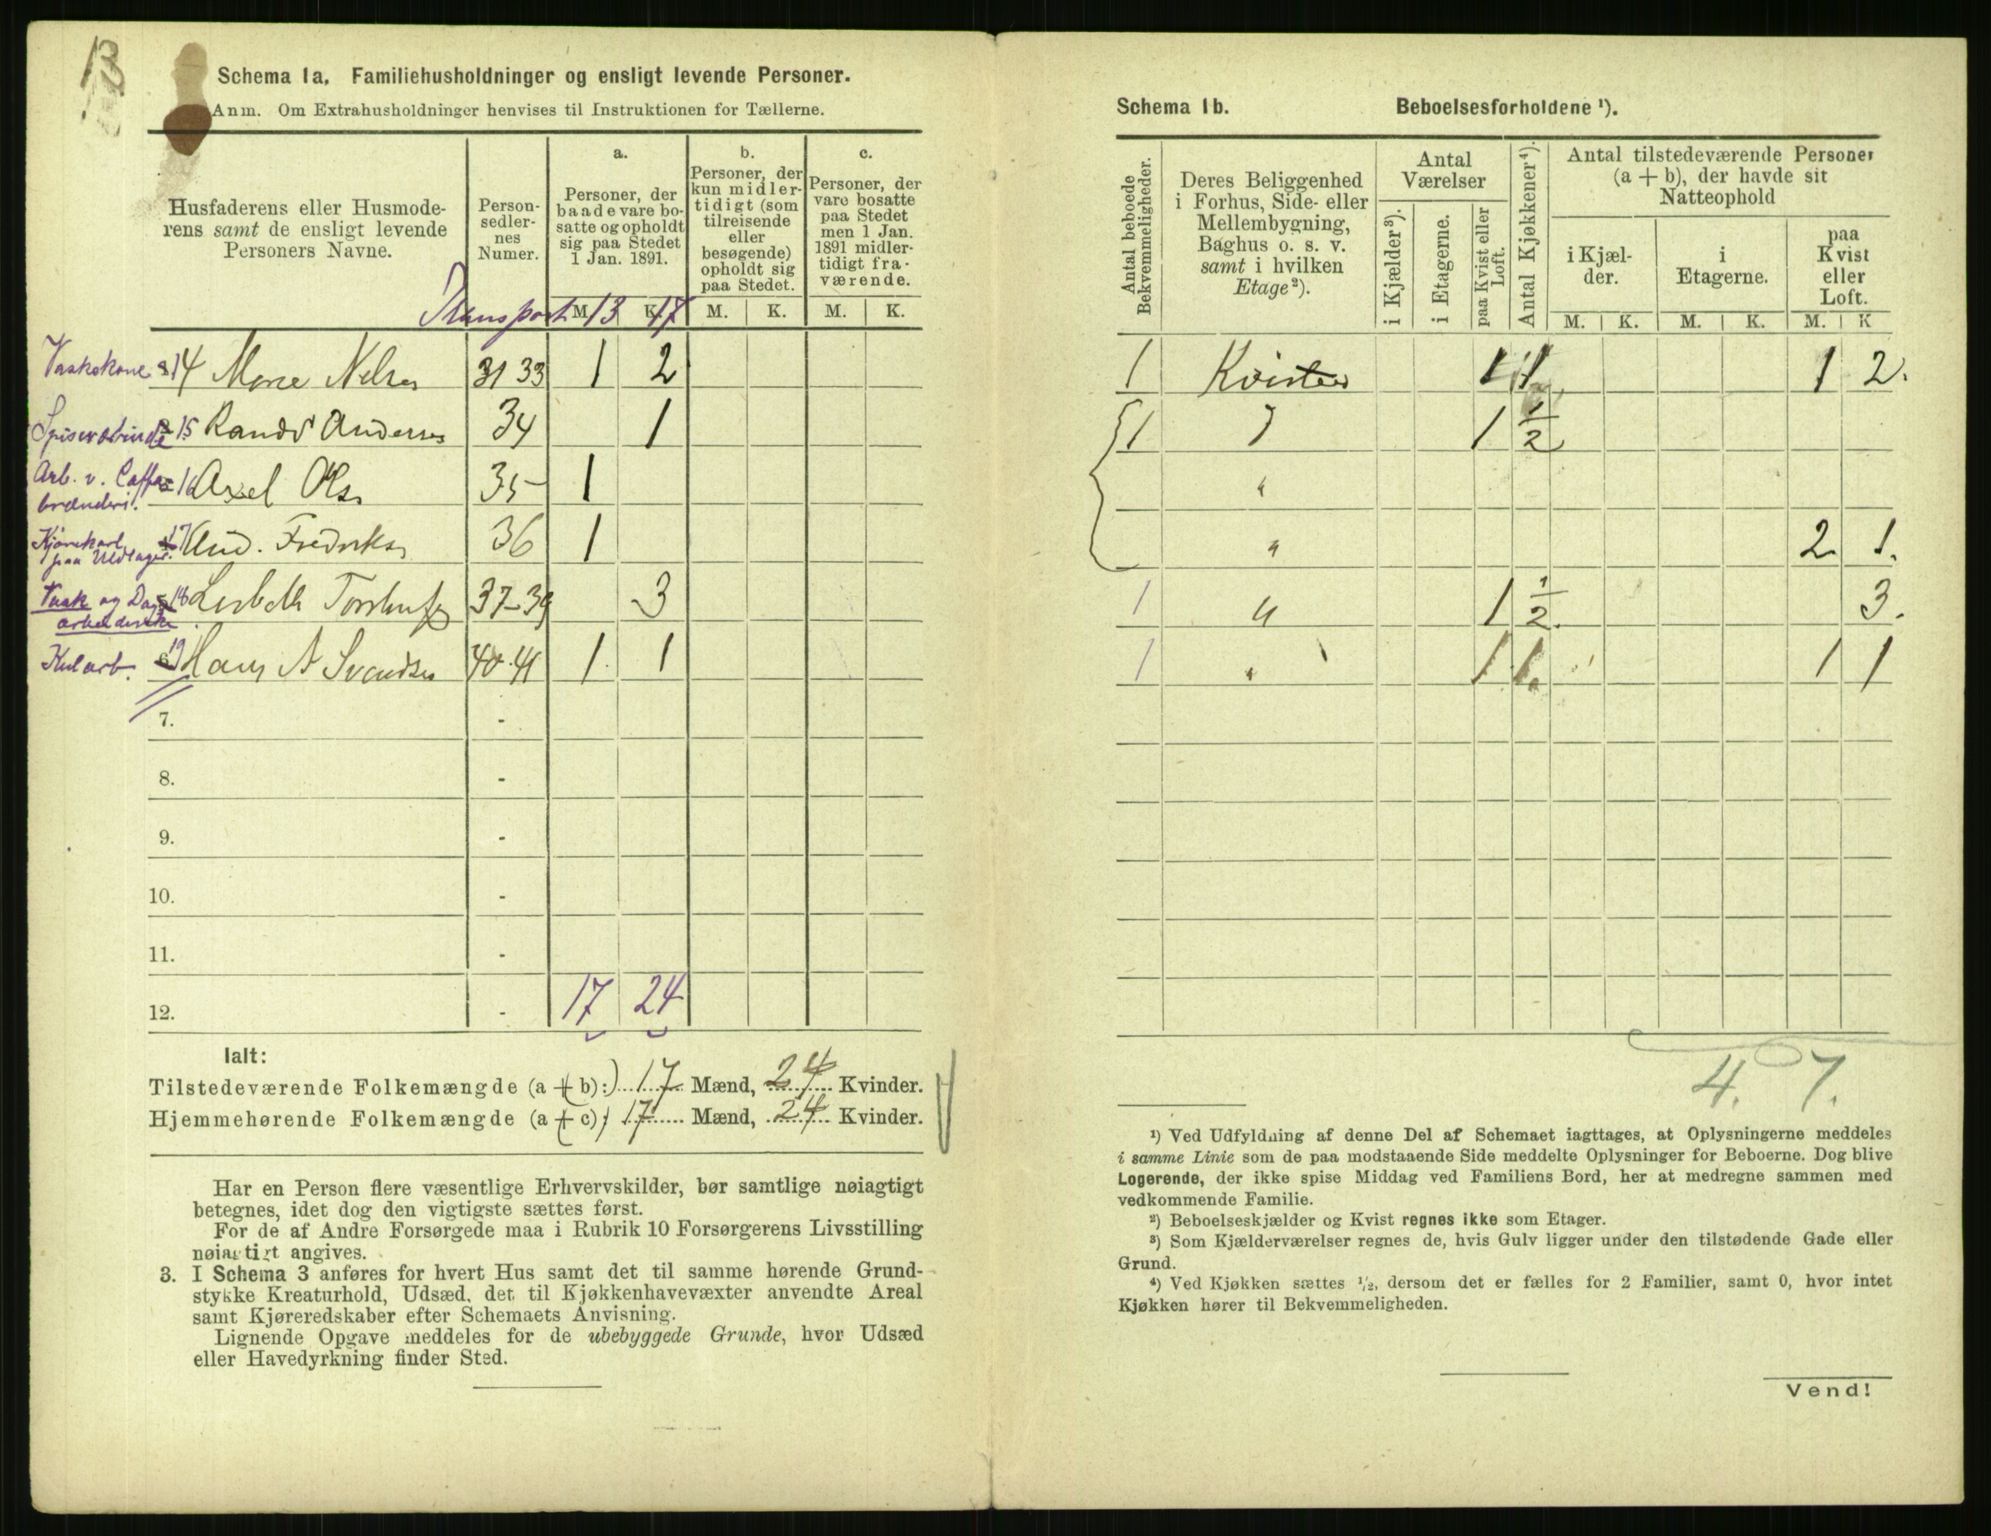 Schema 1a. Familiehusholdninger og ensligt levende Personer.
Anm. Om Extrahusholdninger henvises til Instruktionen for Tællerne.
Husfaderens eller Husmode-
rens samt de ensligt levende
Personers Navne.
Person-
sedler-
nes
Numer.
a.
Personer, der
baade vare bo-
satte og opholdt
sig paa Stedet
1 Jan. 1891.
b.
Personer, der
kun midler-
tidigt (som
tilreisende
eller
besøgende)
opholdt sig
paa Stedet.
c.
Personer, der
vare bosatte
paa Stedet
men 1 Jan.
1891 midler-
tidigt fra-
værende.
M. K. M. K. M. K.
Transport 13 17
Vaskekone 14 Marie Nelsen 31 33 1 2
15 Randi Andersen 34 1
Arb. v. Caffe 16 Axel Olsen 35 1
brænderi.
17 And. Fredriksen 36 1
Vask og Dag 18 Lisbeth 37-39 3
Kularb. 19 Hans A Svendsen 40-41 1 1
7. -
8. -
9. -
10. -
11. -
12. - 17 24
Ialt:
Tilstedeværende Folkemængde (a + b): 17 Mænd, 24 Kvinder.
Hjemmehørende Folkemængde (a + c): 17 Mænd, 24 Kvinder.
Har en Person flere væsentlige Erhvervskilder, bør samtlige nøiagtigt
betegnes, idet dog den vigtigste sættes først.
For de af Andre Forsørgede maa i Rubrik 10 Forsørgerens Livsstilling
nøiagtigt angives.
3. I Schema 3 anføres for hvert Hus samt det til samme hørende Grund-
stykke Kreaturhold, Udsæd, det til Kjøkkenhavevæxter anvendte Areal
samt Kjøreredskaber efter Schemaets Anvisning.
Lignende Opgave meddeles for de ubebyggede Grunde, hvor Udsæd
eller Havedyrkning finder Sted.
Schema 1b. Beboelsesforholdene ¹).
Antal beboede
Bekvemmeligheder.
Deres Beliggenhed
i Forhus, Side- eller
Mellembygning,
Baghus o. s. v.
samt i hvilken
Etage²).
Antal
Værelser
i Kjælder³).
i Etagerne.
paa Kvist eller
Loft.
Antal Kjøkkener⁴).
Antal tilstedeværende Personer
(a + b), der havde sit
Natteophold
i Kjæl-
der.
i
Etagerne.
paa
Kvist
eller
Loft.
M. K. M. K. M. K
1 Kvisten 1 1 1 2.
1 " 1 1/2
"
" 2. 1.
1 " 1 1/2. 3.
1 " 1 1. 1 1
4. 7.
¹) Ved Udfyldning af denne Del af Schemaet iagttages, at Oplysningerne meddeles
i samme Linie som de paa modstaaende Side meddelte Oplysninger for Beboerne. Dog blive
Logerende, der ikke spise Middag ved Familiens Bord, her at medregne sammen med
vedkommende Familie.
²) Beboelseskjælder og Kvist regnes ikke som Etager.
³) Som Kjælderværelser regnes de, hvis Gulv ligger under den tilstødende Gade eller
Grund.
⁴) Ved Kjøkken sættes ½, dersom det er fælles for 2 Familier, samt 0, hvor intet
Kjøkken hører til Bekvemmeligheden.
Vend!